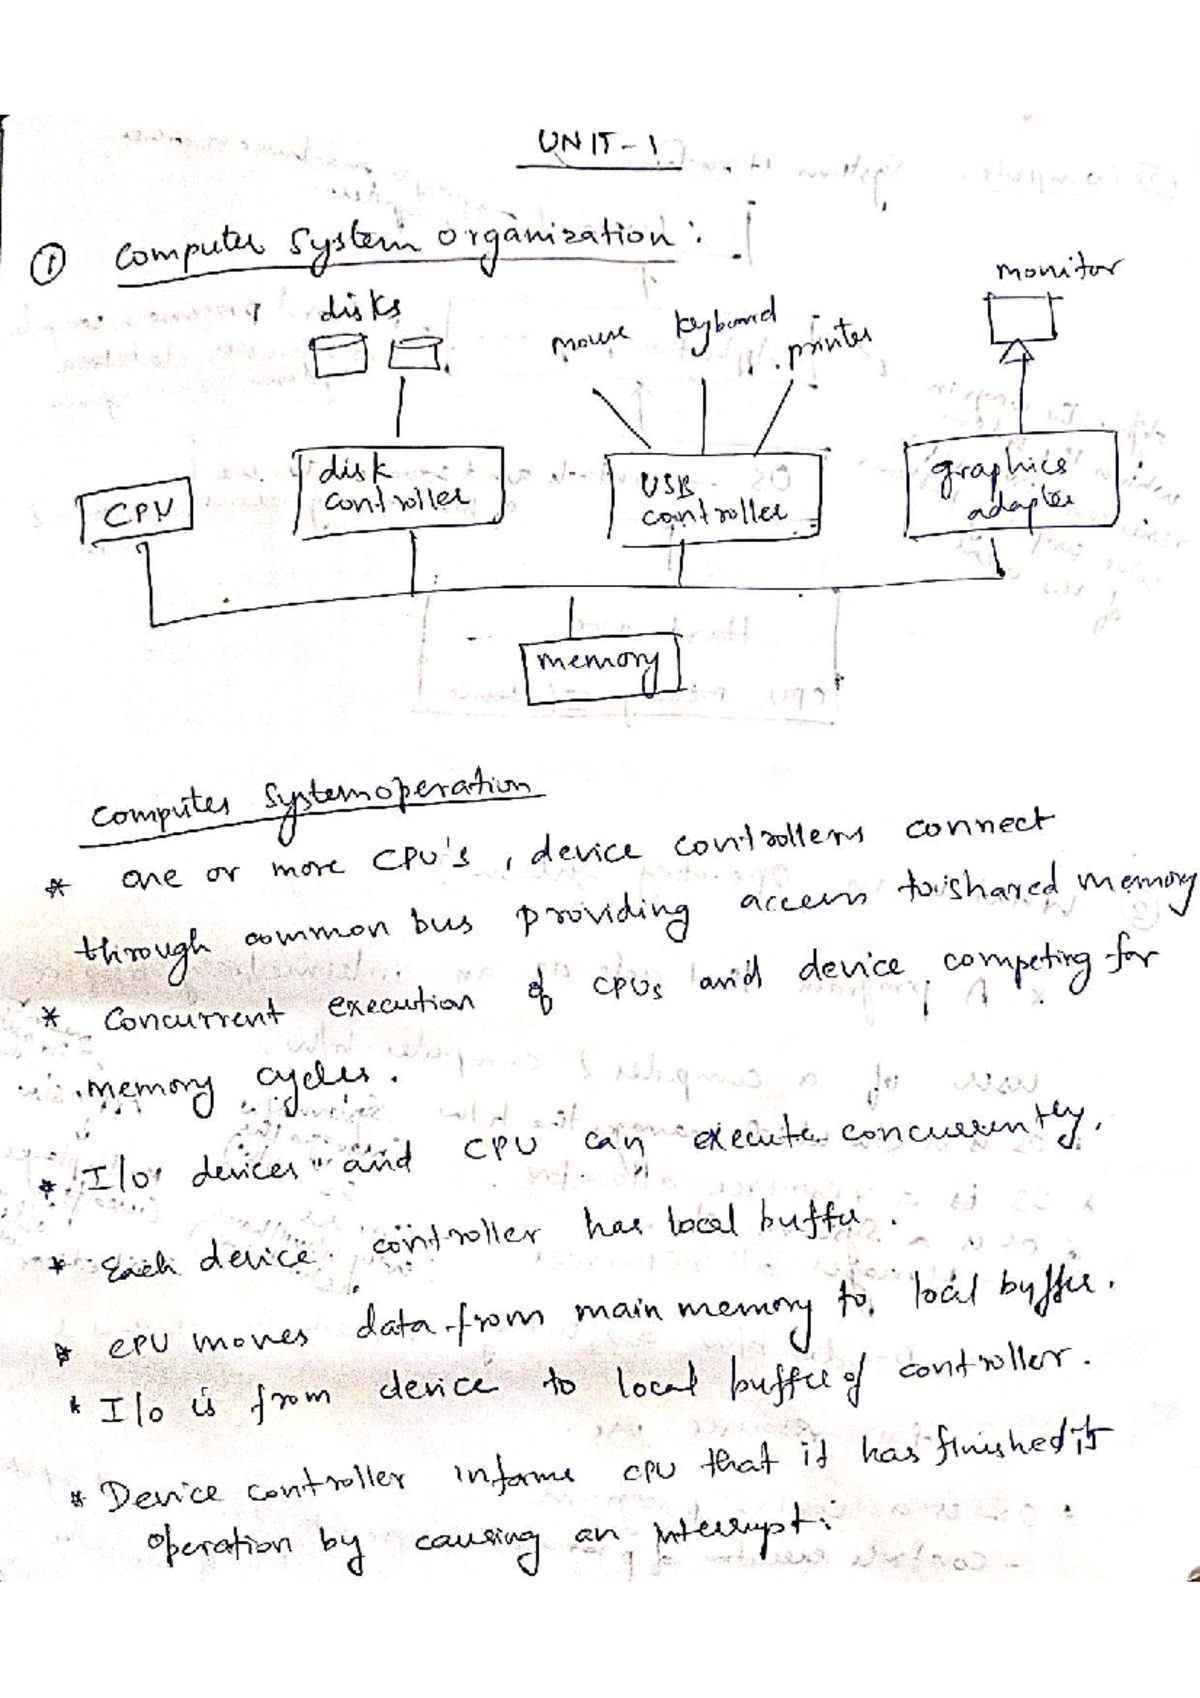 UNIT-1
① Computer System organization:
disks
mouse keyboard printer
monitor
CPU
disk
controller
USB
controller
graphics
adapter
memory
Computer System operation
* one or more CPU's, device controllers connect
through common bus providing access to shared memory
* Concurrent execution of CPUs and device competing for
memory cycles.
* I/o devices and CPU can execute concurrently.
* Each device controller has local buffer.
* CPU moves data from main memory to local buffer.
* I/o is from device to local buffer of controller.
* Device controller informs CPU that it has finished its
operation by causing an Interrupt.